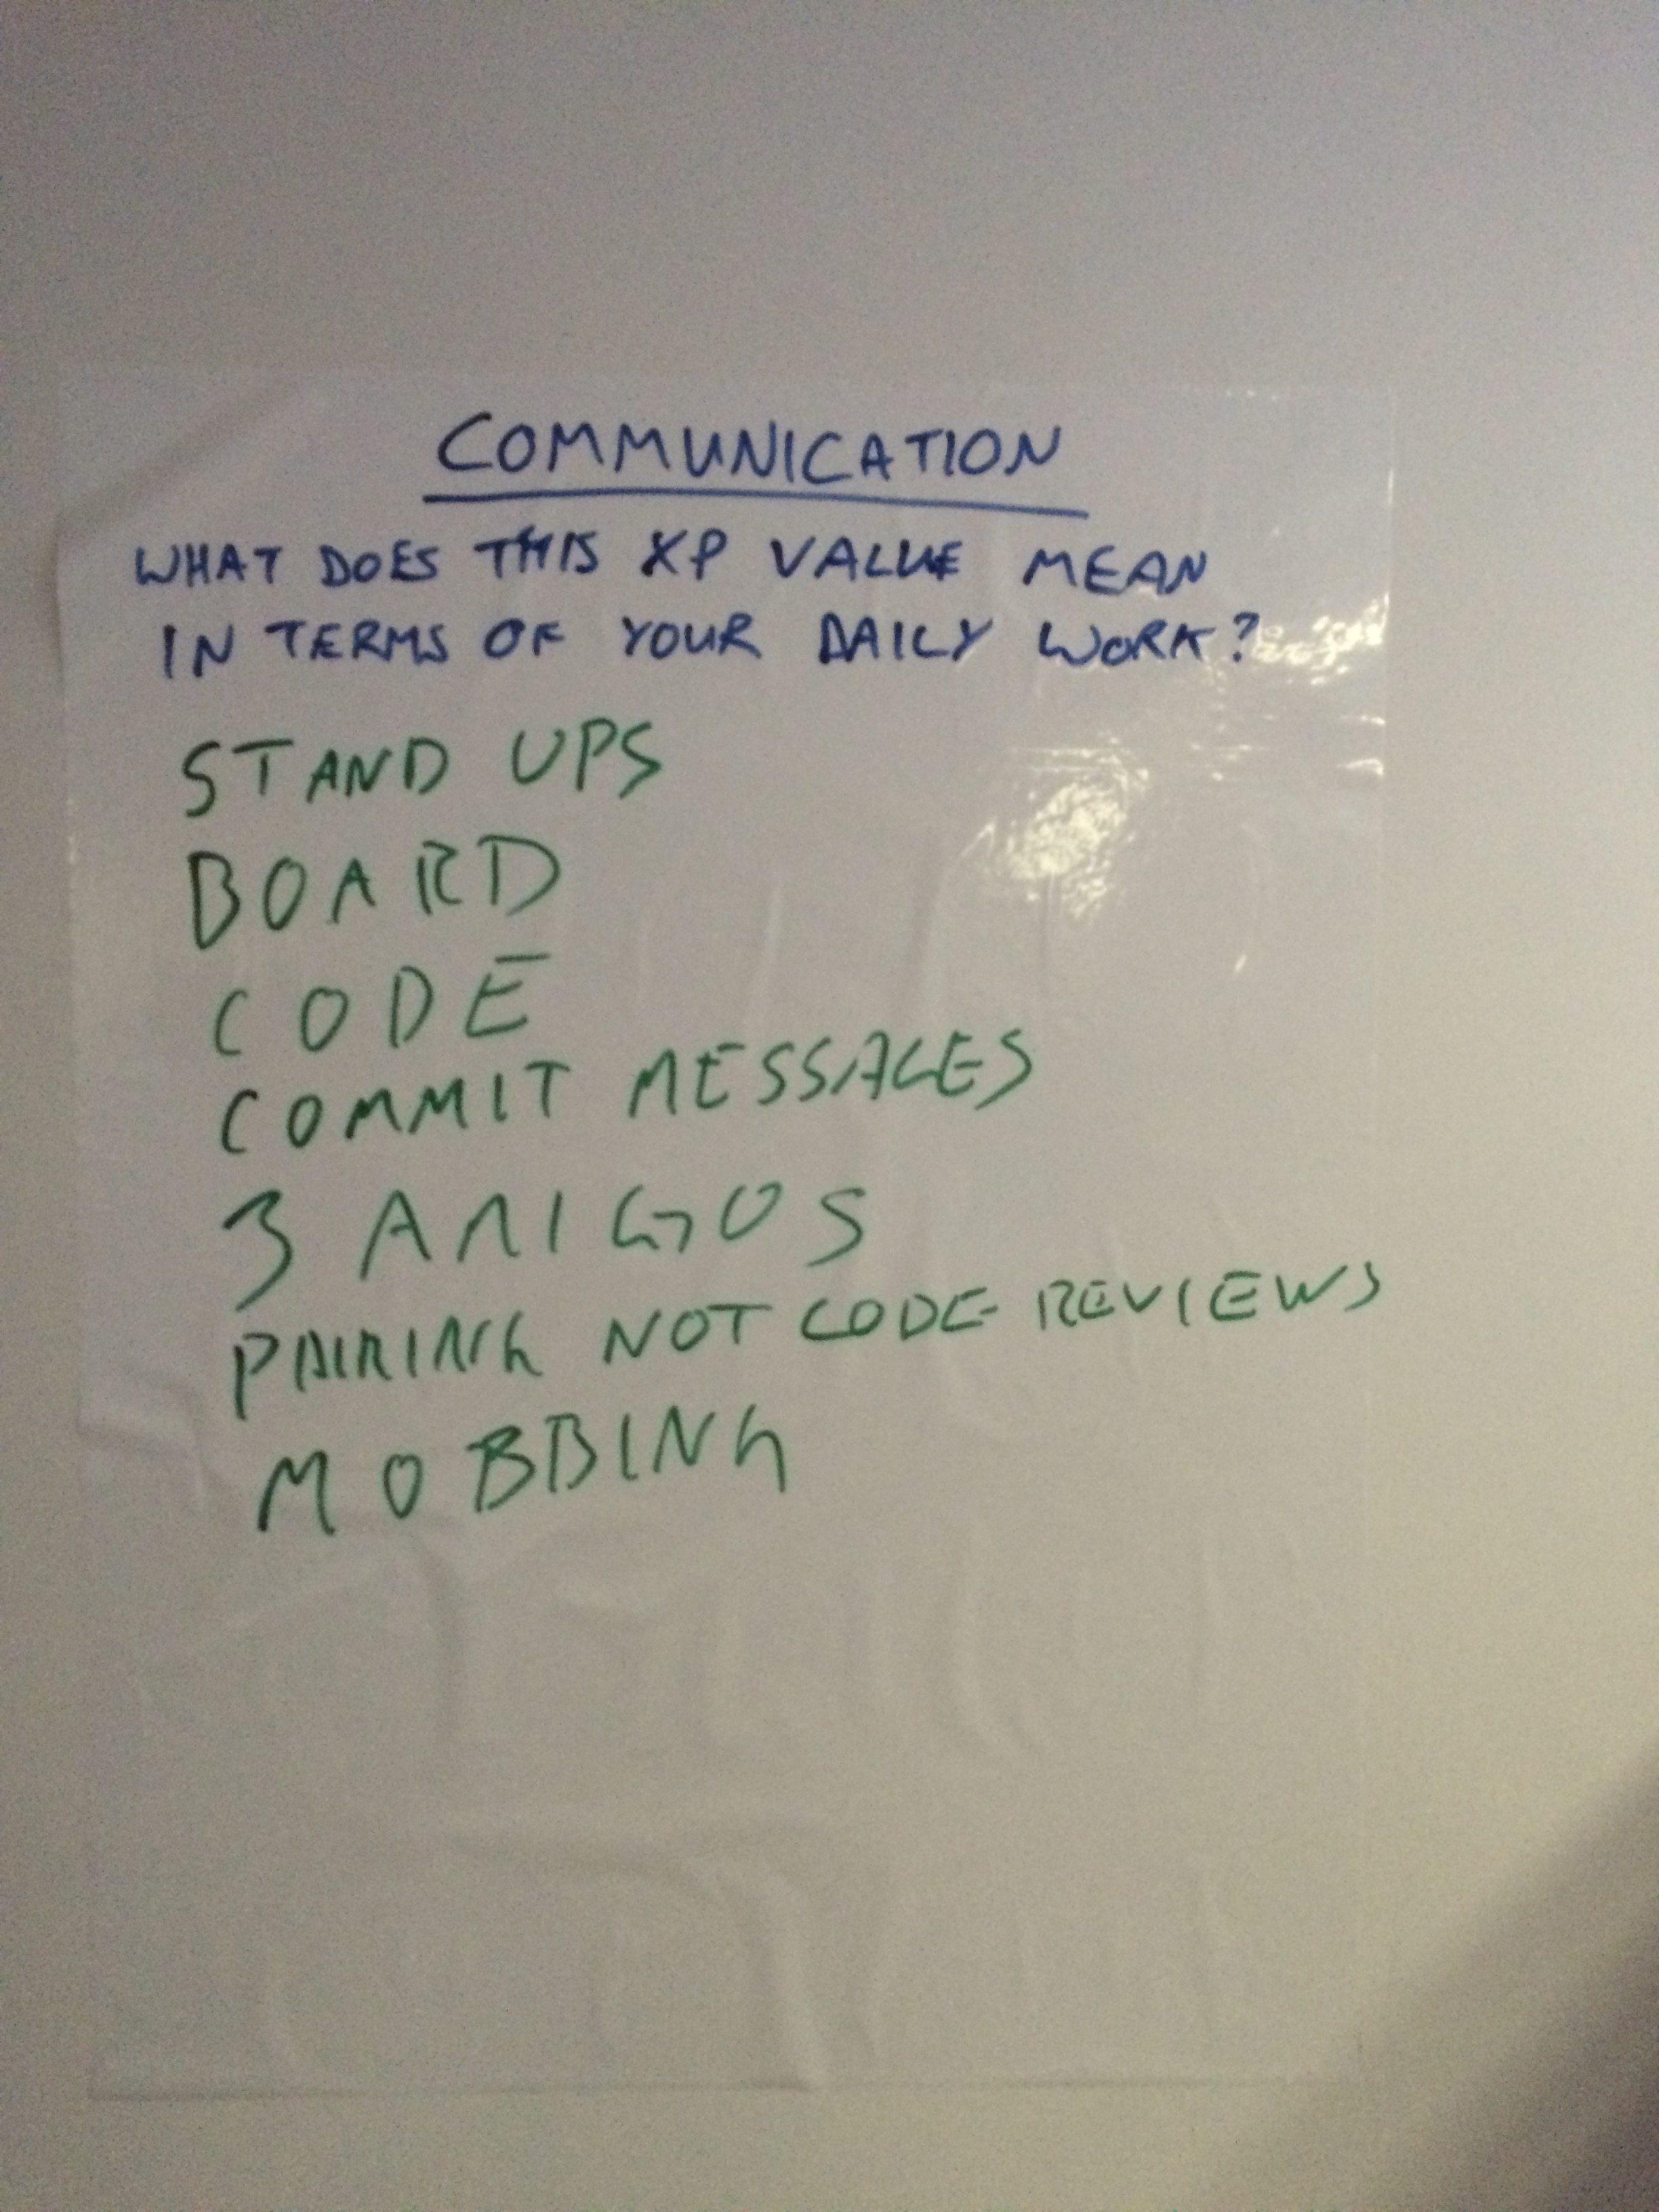 COMMUNICATION
WHAT DOES THIS XP VALUE MEAN
IN TERMS OF YOUR DAILY WORK?
STAND UPS
BOARD
CODE
COMMIT MESSAGES
3 AMIGOS
PAIRING NOT CODE REVIEWS
MOBBING